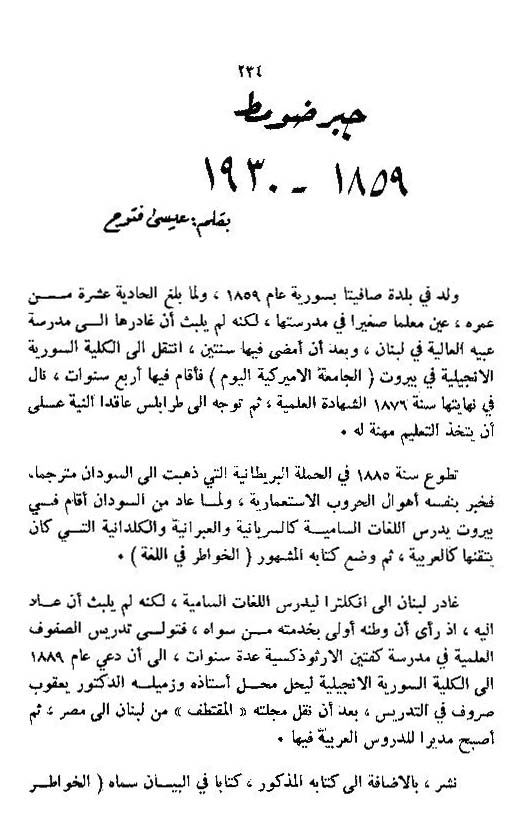 ٢٣٤
جبر ضومط
١٨٥٩ - ١٩٣٠
بقلم: عيسى فتوح
ولد في بلدة صافيتا بسورية عام ١٨٥٩ ، ولما بلغ الحادية عشرة مــن
عمره ، عين معلما صغيرا في مدرستها ، لكنه لم يلبث أن غادرها الـى مدرسة
عبيه العالية في لبنان ، وبعد أن أمضى فيها سنتين ، انتقل الى الكلية السورية
الانجيلية في بيروت ( الجامعة الاميركية اليوم ) فأقام فيها أربع سنوات ، نال
في نهايتها سنة ١٨٧٦ الشهادة العلمية ، ثم توجه الى طرابلس عاقدا النية عـلى
أن يتخذ التعليم مهنة له ٠
تطوع سنة ١٨٨٥ في الحملة البريطانية التي ذهبت الى السودان مترجما،
فخبر بنفسه أهوال الحروب الاستعمارية ، ولمـا عاد من السودان أقام فـي
بيروت يدرس اللغات الساميـة كالسريانية والعبرانية والكلدانية التـي كان
يتقنها كالعربية ، ثم وضع كتابه المشهور ( الخواطر في اللغة ) ٠
غادر لبنان الى انكلترا ليدرس اللغات السامية ، لكنه لم يلبث أن عـاد
اليه ، اذ رأى أن وطنه أولى بخدمته مـن سواه ، فتولـى تدريس الصفوف
العلمية في مدرسة كفتين الارثوذكسية عدة سنوات ، الى أن دعي عام ١٨٨٩
الى الكلية السورية الانجيلية ليحل محـل أستاذه وزميلـه الدكتور يعقوب
صروف في التدريس ، بعد أن نقل مجلته « المقتطف » من لبنان الى مصر ، ثم
أصبح مديرا للدروس العربية فيها ٠
نشر ، بالاضافة الى كتابه المذكور ، كتابا في البيـان سماه ( الخواطـر